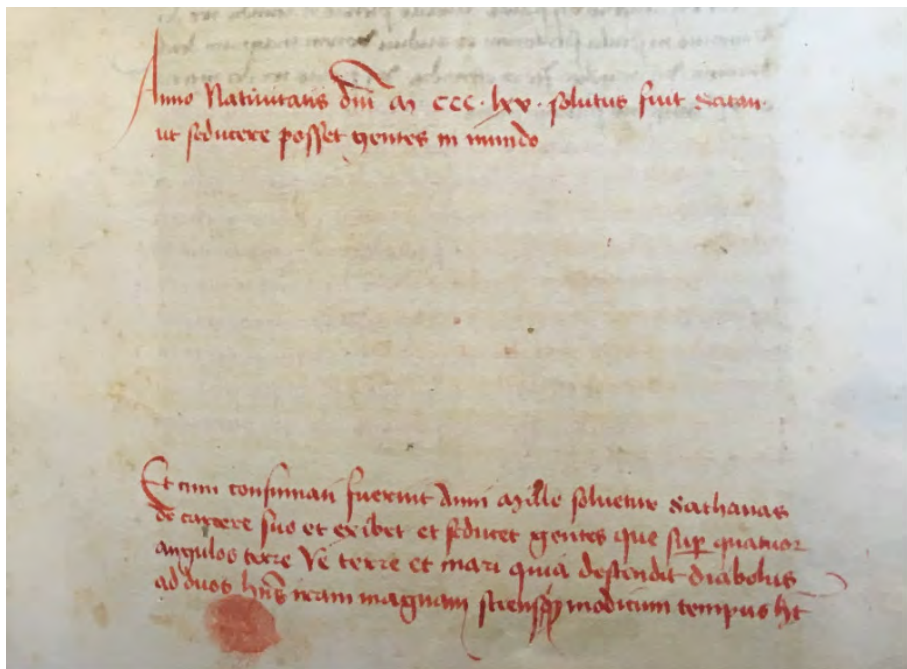 Anno Nativitatis dni M ccc · lxv · solutus fuit Satan
ut seducere posset gentes in mundo
Et cum consumati fuerint Anni Mille solvetur Sathanas
de carcere suo et exibet et seducet gentes que sup quatuor
angulos terre Ve terre et mari quia descendit diabolus
ad duos hns iram magnam sciens modicum tempus ht